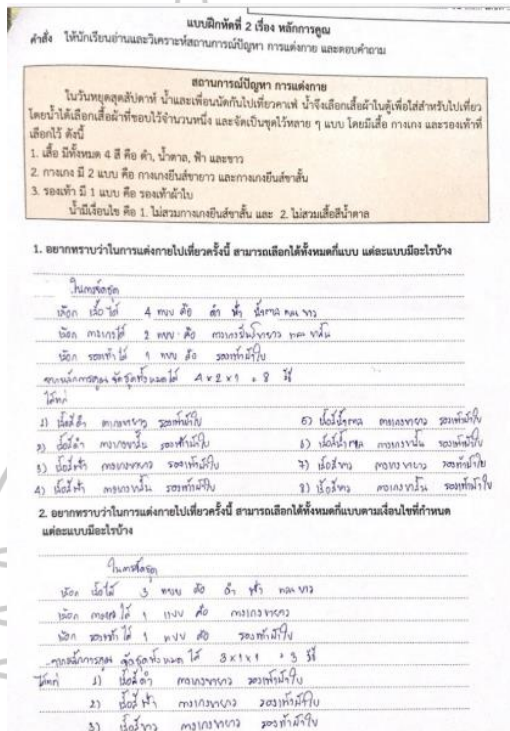 แบบฝึกหัดที่ 2 เรื่อง หลักการคูณ
คำสั่ง ให้นักเรียนอ่านและวิเคราะห์สถานการณ์ปัญหา การแต่งกาย และตอบคำถาม
สถานการณ์ปัญหา การแต่งกาย
ในวันหยุดสุดสัปดาห์ น้ำและเพื่อนนัดกันไปเที่ยวคาเฟ่ น้ำจึงเลือกเสื้อผ้าในตู้เพื่อใส่สำหรับไปเที่ยว
โดยน้ำได้เลือกเสื้อผ้าที่ชอบไว้จำนวนหนึ่ง และจัดเป็นชุดไว้หลาย ๆ แบบ โดยมีเสื้อ กางเกง และรองเท้าที่
เลือกไว้ ดังนี้
1. เสื้อ มีทั้งหมด 4 สี คือ ดำ, น้ำตาล, ฟ้า และขาว
2. กางเกง มี 2 แบบ คือ กางเกงยีนส์ขายาว และกางเกงยีนส์ขาสั้น
3. รองเท้า มี 1 แบบ คือ รองเท้าผ้าใบ
น้ำมีเงื่อนไข คือ 1. ไม่สวมกางเกงยีนส์ขาสั้น และ 2. ไม่สวมเสื้อสีน้ำตาล
1. อยากทราบว่าในการแต่งกายไปเที่ยวครั้งนี้ สามารถเลือกได้ทั้งหมดกี่แบบ แต่ละแบบมีอะไรบ้าง
ในการจัดชุด
เลือก เสื้อ ได้ 4 แบบ คือ ดำ ฟ้า น้ำตาล และ ขาว
เลือก กางเกงได้ 2 แบบ คือ กางเกงยีนส์ขายาว และ ขาสั้น
เลือก รองเท้าได้ 1 แบบ คือ รองเท้าผ้าใบ
จากหลักการคูณ จัดชุดทั้งหมดได้ 4 x 2 x 1 = 8 วิธี
ได้แก่
1) เสื้อสีดำ กางเกงขายาว รองเท้าผ้าใบ
2) เสื้อสีดำ กางเกงขาสั้น รองเท้าผ้าใบ
3) เสื้อสีฟ้า กางเกงขายาว รองเท้าผ้าใบ
4) เสื้อสีฟ้า กางเกงขาสั้น รองเท้าผ้าใบ
5) เสื้อสีน้ำตาล กางเกงขายาว รองเท้าผ้าใบ
6) เสื้อสีน้ำตาล กางเกงขาสั้น รองเท้าผ้าใบ
7) เสื้อสีขาว กางเกงขายาว รองเท้าผ้าใบ
8) เสื้อสีขาว กางเกงขาสั้น รองเท้าผ้าใบ
2. อยากทราบว่าในการแต่งกายไปเที่ยวครั้งนี้ สามารถเลือกได้ทั้งหมดกี่แบบตามเงื่อนไขที่กำหนด
แต่ละแบบมีอะไรบ้าง
ในการจัดชุด
เลือก เสื้อได้ 3 แบบ คือ ดำ ฟ้า และ ขาว
เลือก กางเกง ได้ 1 แบบ คือ กางเกงขายาว
เลือก รองเท้า ได้ 1 แบบ คือ รองเท้าผ้าใบ
จากหลักการคูณ จัดชุดทั้งหมด ได้ 3 x 1 x 1 = 3 วิธี
ได้แก่ 1) เสื้อสีดำ กางเกงขายาว รองเท้าผ้าใบ
2) เสื้อสีฟ้า กางเกงขายาว รองเท้าผ้าใบ
3) เสื้อสีขาว กางเกงขายาว รองเท้าผ้าใบ